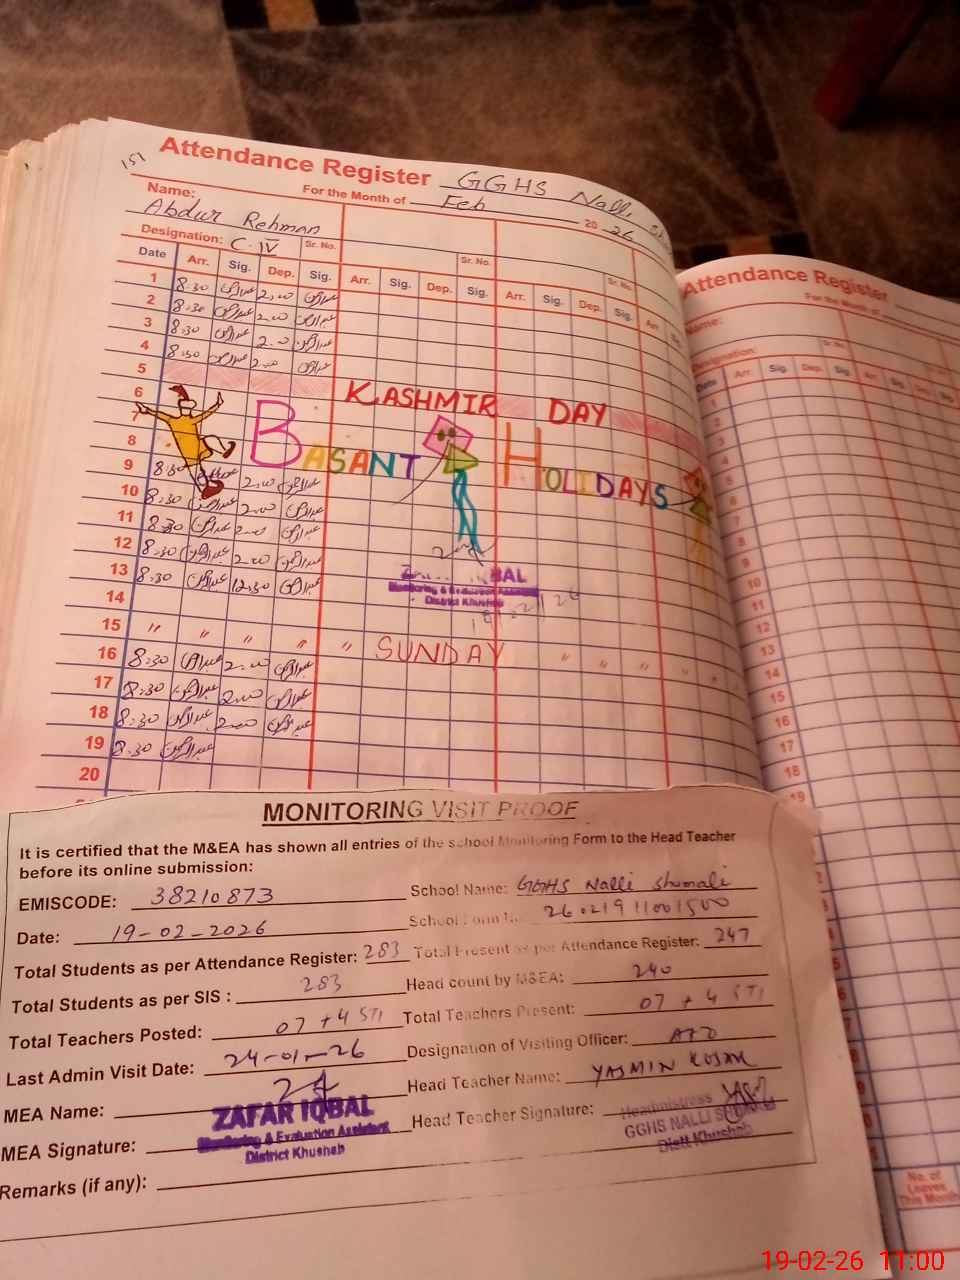 151
Attendance Register GGHS Nalli
For the Month of Feb 2026
Name:
Abdur Rehman
Designation: C-IV Sr. No. Sr. No. Sr. No.
Date Arr. Sig. Dep. Sig. Arr. Sig. Dep. Sig. Arr. Sig. Dep. Sig. Arr
1 8:30 2:00
2 8:30 2:00
3 8:30 2:00
4 8:30 2:00
5 KASHMIR DAY
6
7 BASANT HOLIDAYS
8
9 8:30 2:00
10 8:30 2:00
11 8:30 2:00
12 8:30 2:00
13 8:30 12:30
14
15 " " " " " SUNDAY " " " " "
16 8:30 2:00
17 8:30 2:00
18 8:30 2:00
19 8:30
20
IQBAL
Monitoring & Evaluation Assistant
District Khushab
Attendance Register
For the Month of
Name:
Designation: Sr. No.
Date Arr. Sig. Dep. Sig. Arr. Sig. Dep. Sig.
1
2
3
4
5
6
7
8
9
10
11
12
13
14
15
16
17
18
19
No. of
Leaves
This Month
MONITORING VISIT PROOF
It is certified that the M&EA has shown all entries of the school Monitoring Form to the Head Teacher
before its online submission:
EMISCODE: 38210873 School Name: GGHS Nalli Shumali
Date: 19-02-2026 School Form 26021911001500
Total Students as per Attendance Register: 283 Total Present as per Attendance Register: 247
Total Students as per SIS : 283 Head count by M&EA: 240
Total Teachers Posted: 07 + 4 STI Total Teachers Present: 07 + 4 STI
Last Admin Visit Date: 24-01-26 Designation of Visiting Officer:
MEA Name: Head Teacher Name: YASMIN KOSAR
ZAFAR IQBAL
Monitoring & Evaluation Assistant
District Khushab
MEA Signature: Head Teacher Signature:
Headmistress
GGHS NALLI SHUMALI
Distt Khushab
Remarks (if any):
19-02-26 11:00